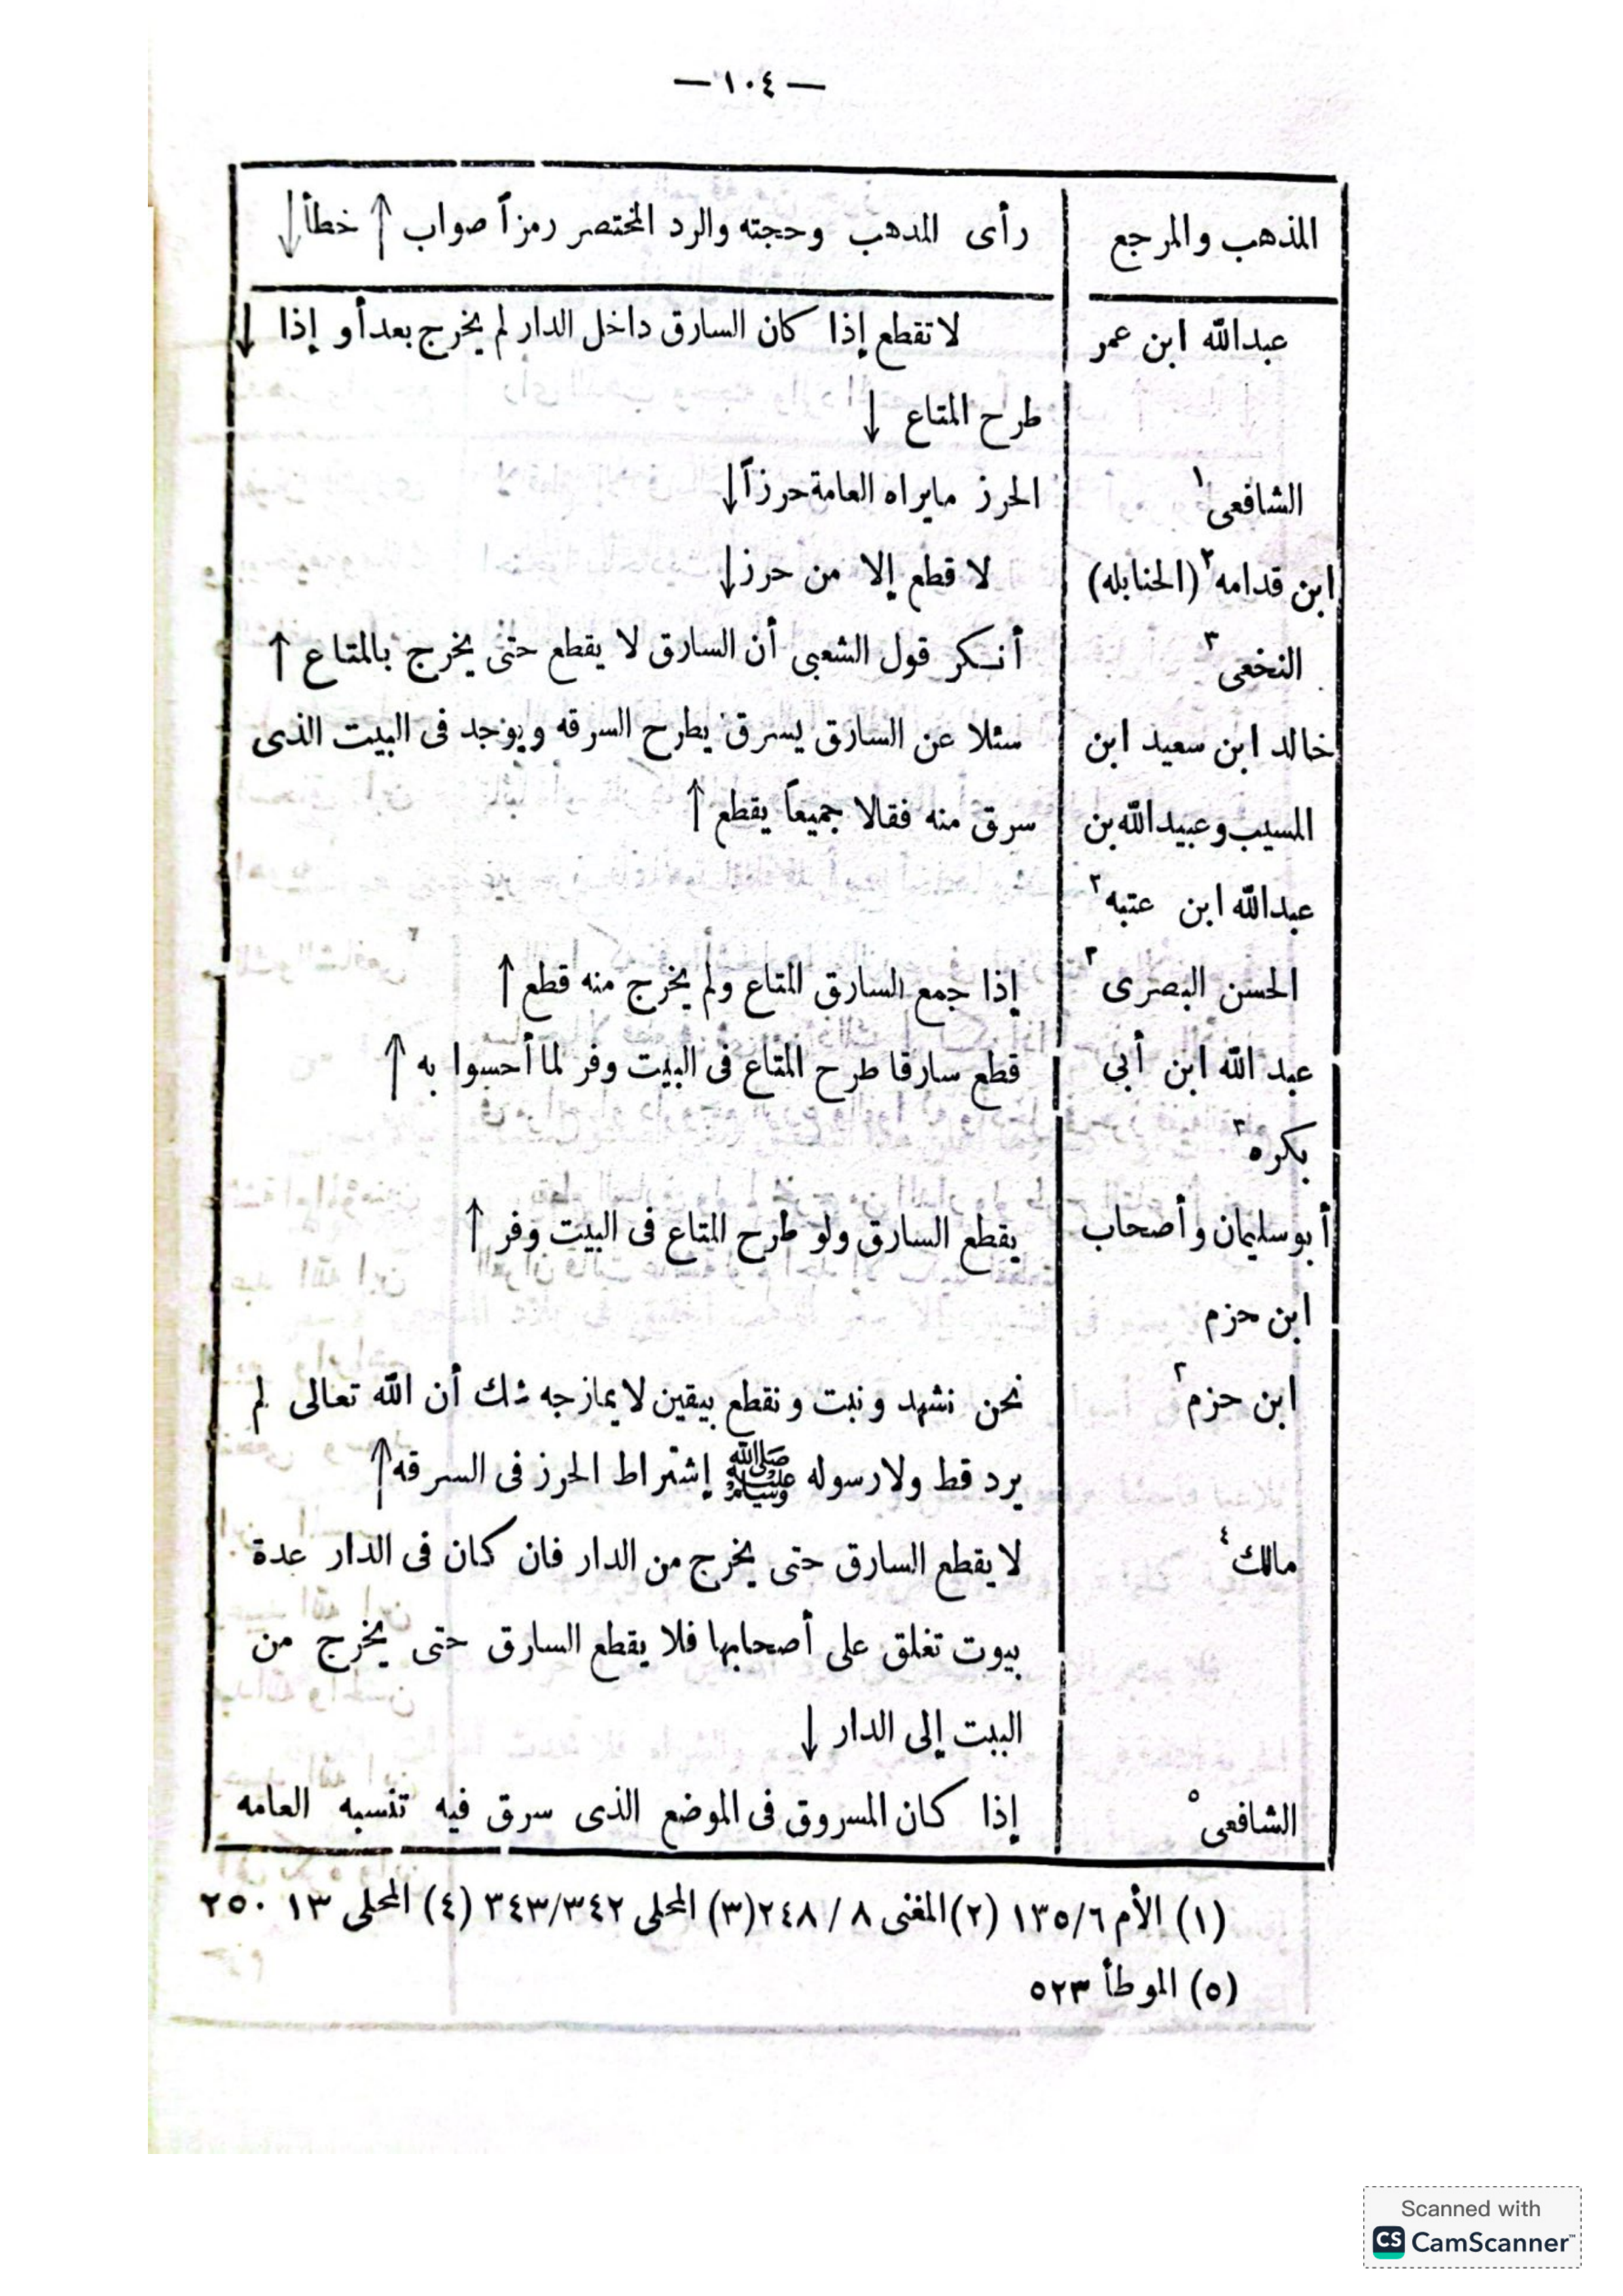 — ١٠٤ —
المذهب والمرجع | رأى المدهب وحجته والرد المختصر رمزاً صواب ↑ خطأ ↓
عبدالله ابن عمر | لا تقطع إذا كان السارق داخل الدار لم يخرج بعد أو إذا ↓
طرح المتاع ↓
الشافعى ١ | الحرز مايراه العامة حرزاً ↓
ابن قدامه ٢ (الحنابله) | لا قطع إلا من حرز ↓
النخعى ٣ | أنكر قول الشعبى أن السارق لا يقطع حتى يخرج بالمتاع ↑
خالد ابن سعيد ابن | سئلا عن السارق يسرق يطرح السرقه ويوجد فى البيت الذى
المسيب وعبيدالله بن | سرق منه فقالا جميعاً يقطع ↑
عبدالله ابن عتبه ٢
الحسن البصرى ٣ | إذا جمع السارق المتاع ولم يخرج منه قطع ↑
عبد الله ابن أبى | قطع سارقا طرح المتاع فى البيت وفر لما أحسوا به ↑
بكره ٣
أبو سليمان وأصحاب | يقطع السارق ولو طرح المتاع فى البيت وفر ↑
ابن حزم
ابن حزم ٢ | نحن نشهد ونبت ونقطع بيقين لا يمازجه شك أن الله تعالى لم
يرد قط ولا رسوله ﷺ إشتراط الحرز فى السرقه ↑
مالك ٤ | لا يقطع السارق حتى يخرج من الدار فان كان فى الدار عدة
بيوت تغلق على أصحابها فلا يقطع السارق حتى يخرج من
البيت إلى الدار ↓
الشافعى ٥ | إذا كان المسروق فى الموضع الذى سرق فيه تنسبه العامه
(١) الأم ١٣٥/٦ (٢) المغنى ٨ / ٢٤٨ (٣) المحلى ٣٤٣/٣٤٢ (٤) المحلى ١٣ ٢٥٠
(٥) الموطأ ٥٢٣
Scanned with
CS CamScanner™